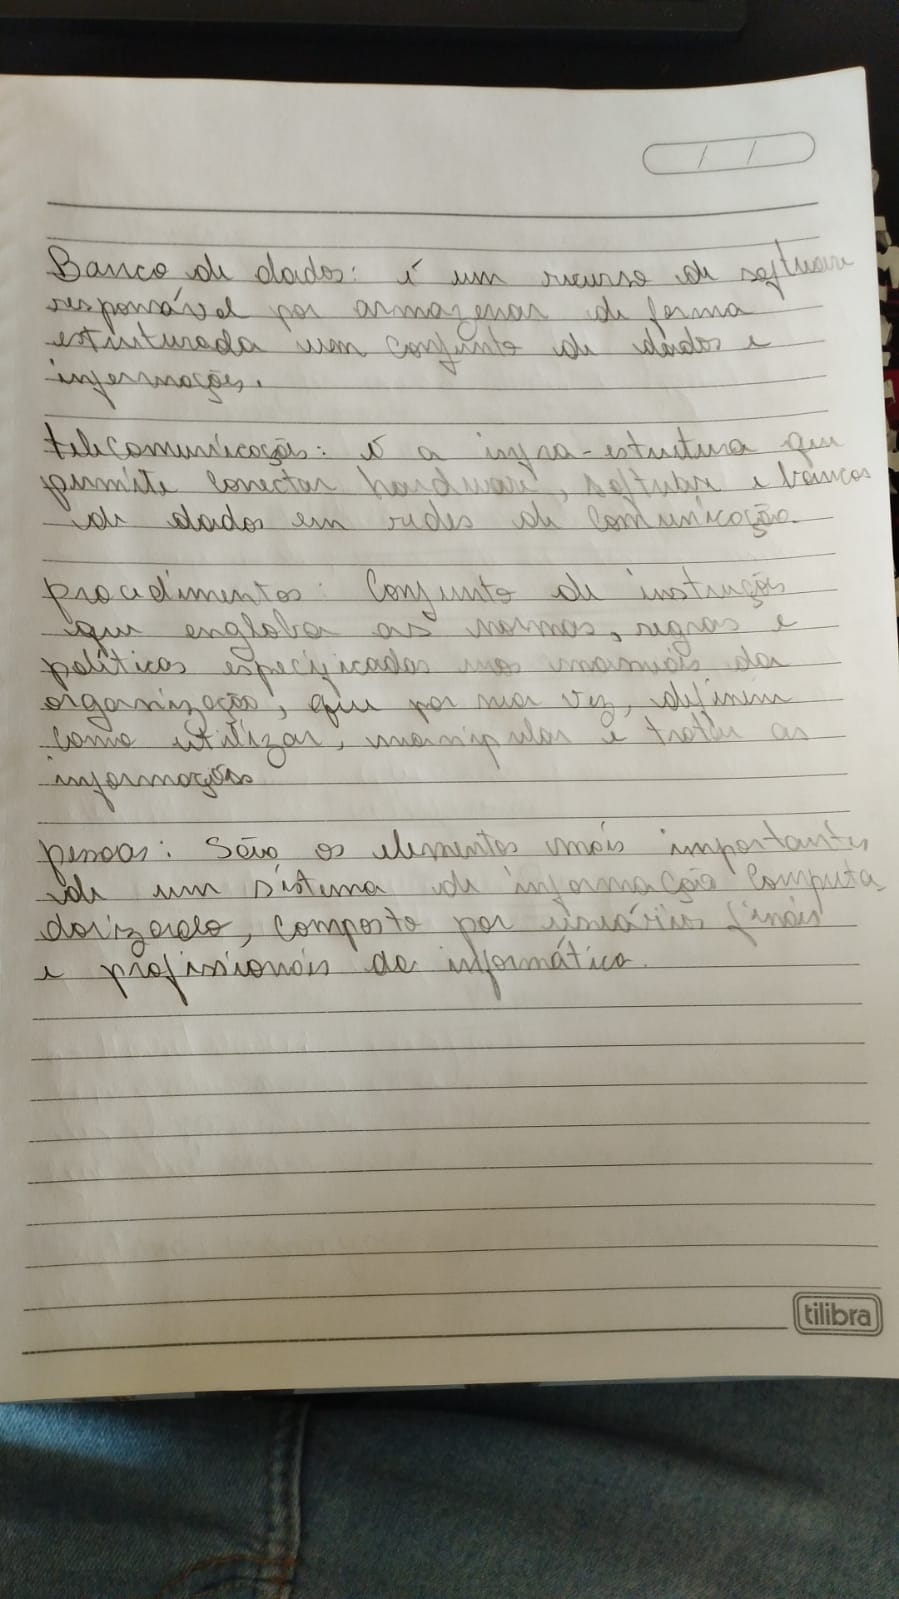 / /
Banco de dados: é um recurso de software
responsável por armazenar de forma
estruturada um conjunto de dados e
informações.
telecomunicações: é a infra-estrutura que
permite conectar hardware, software e bancos
de dados em redes de comunicação.
procedimentos: Conjunto de instruções
que engloba as normas, regras e
políticas especificadas nos manuais da
organização, que por sua vez, definem
como utilizar, manipular e tratar as
informações
pessoas: São os elementos mais importantes
de um sistema de informação computa
dorizado, composto por usuários finais
e profissionais da informática.
tilibra